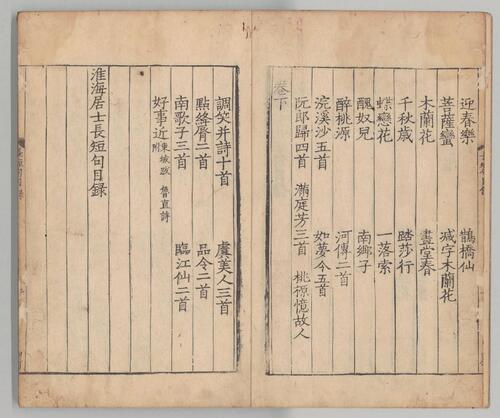 迎春樂 鵲橋仙
菩薩蠻 减字木蘭花
木蘭花 畫堂春
千秋歲 踏莎行
蝶戀花 一落索
醜奴兒 南鄉子
醉桃源 河傳二首
浣溪沙五首 如夢令五首
阮郎歸四首 滿庭芳三首 桃源憶故人
卷下
調笑并詩十首 虞美人三首
點絳脣二首 品令二首
南歌子三首 臨江仙二首
好事近 東坡跋 魯直詩 附
淮海居士長短句目録